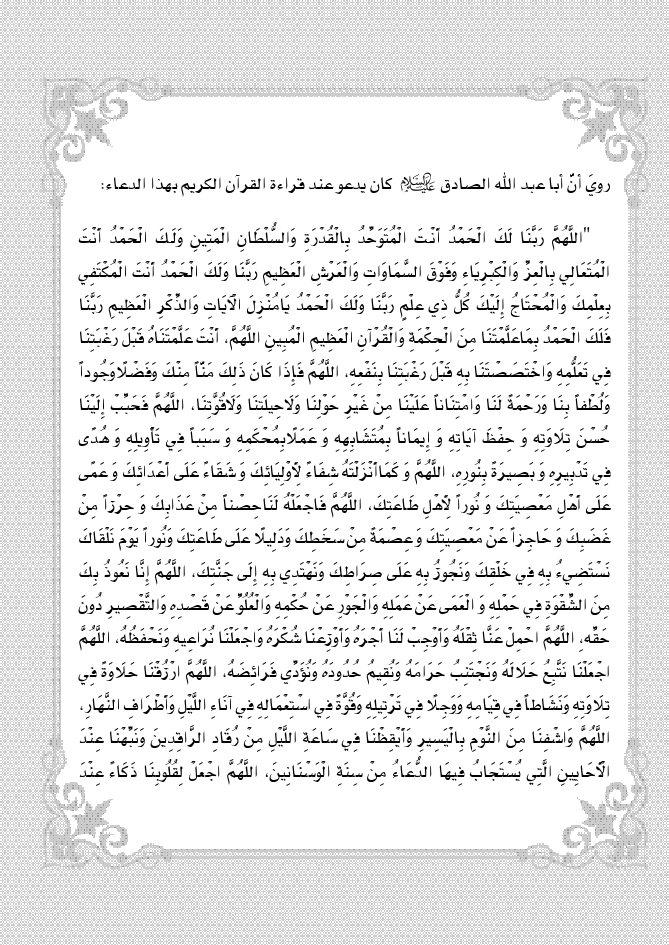 رويَ أنّ أبا عبد الله الصادق عليه السلام كان يدعو عند قراءة القرآن الكريم بهذا الدعاء:
"اللَّهُمَّ رَبَّنَا لَكَ الْحَمْدُ أَنْتَ الْمُتَوَحِّدُ بِالْقُدْرَةِ وَالسُّلْطَانِ الْمَتِينِ وَلَكَ الْحَمْدُ أَنْتَ
الْمُتَعَالِي بِالْعِزِّ وَالْكِبْرِيَاءِ وَفَوْقَ السَّمَاوَاتِ وَالْعَرْشِ الْعَظِيمِ رَبَّنَا وَلَكَ الْحَمْدُ أَنْتَ الْمُكْتَفِي
بِعِلْمِكَ وَالْمُحْتَاجُ إِلَيْكَ كُلُّ ذِي عِلْمٍ رَبَّنَا وَلَكَ الْحَمْدُ يَامُنْزِلَ الْآيَاتِ وَالذِّكْرِ الْعَظِيمِ رَبَّنَا
فَلَكَ الْحَمْدُ بِمَاعَلَّمْتَنَا مِنَ الْحِكْمَةِ وَالْقُرْآنِ الْعَظِيمِ الْمُبِينِ اللَّهُمَّ، أَنْتَ عَلَّمْتَنَاهُ قَبْلَ رَغْبَتِنَا
فِي تَعَلُّمِهِ وَاخْتَصَصْتَنَا بِهِ قَبْلَ رَغْبَتِنَا بِنَفْعِهِ، اللَّهُمَّ فَإِذَا كَانَ ذَلِكَ مَنّاً مِنْكَ وَفَضْلًا وَجُوداً
وَلُطْفاً بِنَا وَرَحْمَةً لَنَا وَامْتِنَاناً عَلَيْنَا مِنْ غَيْرِ حَوْلِنَا وَلَاحِيلَتِنَا وَلَاقُوَّتِنَا، اللَّهُمَّ فَحَبِّبْ إِلَيْنَا
حُسْنَ تِلَاوَتِهِ وَ حِفْظَ آيَاتِهِ وَ إِيمَاناً بِمُتَشَابِهِهِ وَ عَمَلًابِمُحْكَمِهِ وَ سَبَباً فِي تَأْوِيلِهِ وَ هُدًى
فِي تَدْبِيرِهِ وَ بَصِيرَةً بِنُورِهِ، اللَّهُمَّ وَ كَمَاأَنْزَلْتَهُ شِفَاءً لِأَوْلِيَائِكَ وَ شَقَاءً عَلَى أَعْدَائِكَ وَ عَمًى
عَلَى أَهْلِ مَعْصِيَتِكَ وَ نُوراً لِأَهْلِ طَاعَتِكَ، اللَّهُمَّ فَاجْعَلْهُ لَنَاحِصْناً مِنْ عَذَابِكَ وَ حِرْزاً مِنْ
غَضَبِكَ وَ حَاجِزاً عَنْ مَعْصِيَتِكَ وَ عِصْمَةً مِنْ سَخَطِكَ وَدَلِيلًا عَلَى طَاعَتِكَ وَنُوراً يَوْمَ نَلْقَاكَ
نَسْتَضِيءُ بِهِ فِي خَلْقِكَ وَنَجُوزُ بِهِ عَلَى صِرَاطِكَ وَنَهْتَدِي بِهِ إِلَى جَنَّتِكَ، اللَّهُمَّ إِنَّا نَعُوذُ بِكَ
مِنَ الشِّقْوَةِ فِي حَمْلِهِ وَ الْعَمَى عَنْ عَمَلِهِ وَالْجَوْرِ عَنْ حُكْمِهِ وَالْعُلُوِّ عَنْ قَصْدِهِ وَالتَّقْصِيرِ دُونَ
حَقِّهِ، اللَّهُمَّ احْمِلْ عَنَّا ثِقْلَهُ وَأَوْجِبْ لَنَا أَجْرَهُ وَأَوْزِعْنَا شُكْرَهُ وَاجْعَلْنَا نُرَاعِيهِ وَنَحْفَظُهُ، اللَّهُمَّ
اجْعَلْنَا نَتَّبِعُ حَلَالَهُ وَنَجْتَنِبُ حَرَامَهُ وَنُقِيمُ حُدُودَهُ وَنُؤَدِّي فَرَائِضَهُ، اللَّهُمَّ ارْزُقْنَا حَلَاوَةً فِي
تِلَاوَتِهِ وَنَشَاطاً فِي قِيَامِهِ وَوَجِلًا فِي تَرْتِيلِهِ وَقُوَّةً فِي اسْتِعْمَالِهِ فِي آنَاءِ اللَّيْلِ وَأَطْرَافِ النَّهَارِ،
اللَّهُمَّ وَاشْفِنَا مِنَ النَّوْمِ بِالْيَسِيرِ وَأَيْقِظْنَا فِي سَاعَةِ اللَّيْلِ مِنْ رُقَادِ الرَّاقِدِينَ وَنَبِّهْنَا عِنْدَ
الْأَحَايِينِ الَّتِي يُسْتَجَابُ فِيهَا الدُّعَاءُ مِنْ سِنَةِ الْوَسْنَانِينَ، اللَّهُمَّ اجْعَلْ لِقُلُوبِنَا ذَكَاءً عِنْدَ